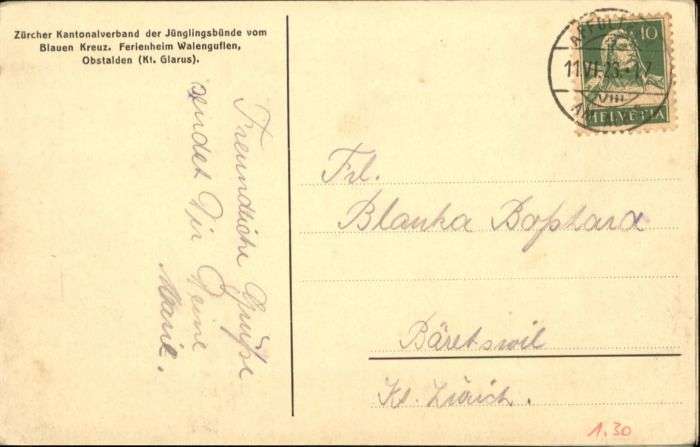 Zürcher Kantonalverband der Jünglingsbünde vom
Blauen Kreuz. Ferienheim Walenguflen,
Obstalden (Kt. Glarus).
Freundliche Grüße
sendet Dir Deine
Marie.
10
11.VI.23.
VIII
HELVETIA
Frl.
Blanka
Bäretswil
Kt. Zürich.
1.30